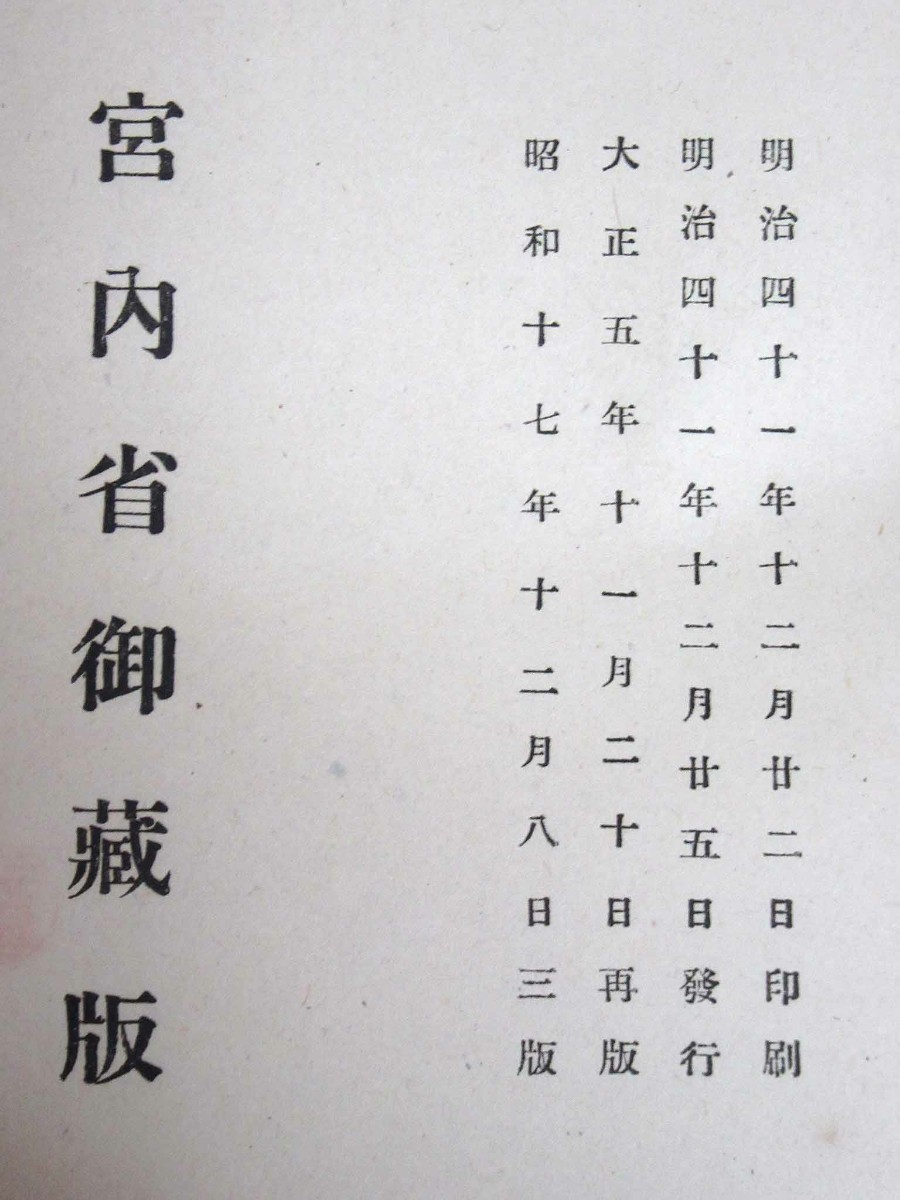 明治四十一年十二月廿二日印刷
明治四十一年十二月廿五日發行
大正五年十一月二十日再版
昭和十七年十二月八日三版
宮內省御藏版